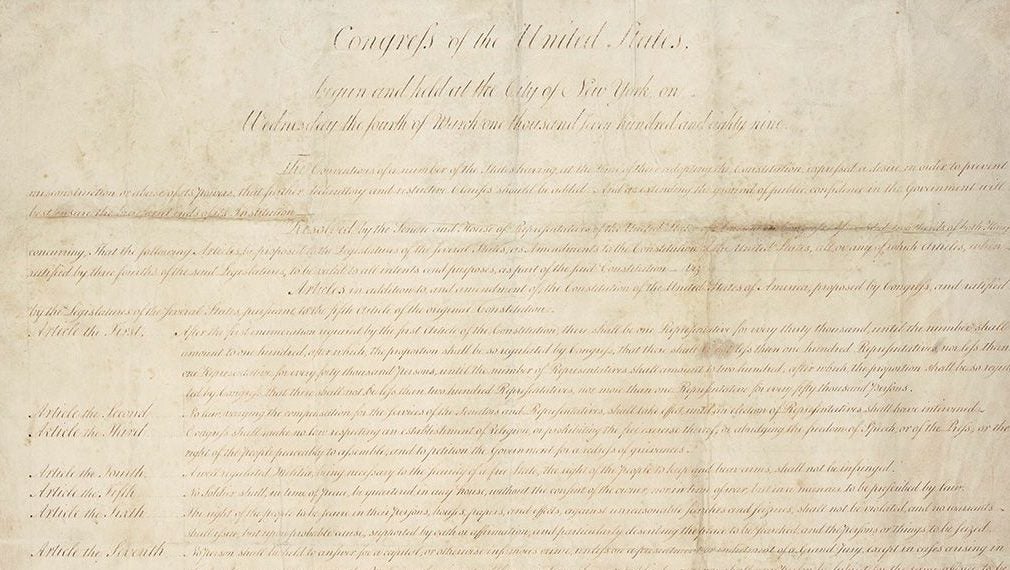 Congress of the United States,
begun and held at the City of New York, on
Wednesday the fourth of March, one thousand seven hundred and eighty nine.
The Conventions of a number of the States having, at the time of their adopting the Constitution, expressed a desire, in order to prevent
misconstruction or abuse of its powers, that further declaratory and restrictive Clauses should be added: And as extending the ground of public confidence in the Government will
best ensure the beneficent ends of its Institution
Resolved by the Senate and House of Representatives of the United States of two thirds of both Houses
concurring, That the following Articles be proposed to the Legislatures of the several States, as Amendments to the Constitution of the United States, all or any of which Articles, when
ratified by three fourths of the said Legislatures, to be valid to all intents and purposes, as part of the said Constitution, Viz.
Articles in addition to, and amendment of, the Constitution of the United States of America, proposed by Congress, and ratified
by the Legislatures of the several States, pursuant to the fifth Article of the original Constitution.
Article the First. After the first enumeration required by the first Article of the Constitution, there shall be one Representative for every thirty thousand, until the number shall
amount to one hundred, after which, the proportion shall be so regulated by Congress, that there shall be not less than one hundred Representatives, nor less than
one Representative for every forty thousand persons, until the number of Representatives shall amount to two hundred, after which, the proportion shall be so regu
lated by Congress, that there shall not be less than two hundred Representatives, nor more than one Representative for every fifty thousand persons.
Article the Second. No law, varying the compensation for the services of the Senators and Representatives, shall take effect, until an election of Representatives shall have intervened.
Article the Third. Congress shall make no law respecting an establishment of Religion, or prohibiting the free exercise thereof, or abridging the freedom of Speech, or of the Press, or the
right of the People peaceably to assemble, and to petition the Government for a redress of grievances.
Article the Fourth. A well regulated Militia, being necessary to the security of a free State, the right of the People to keep and bear arms, shall not be infringed.
Article the Fifth. No Soldier shall, in time of Peace, be quartered in any House, without the consent of the owner, nor in time of war, but in a manner to be prescribed by law.
Article the Sixth. The right of the people to be secure in their Persons, houses, papers, and effects, against unreasonable searches and seizures, shall not be violated, and no warrants
shall issue, but upon probable cause, supported by oath or affirmation, and particularly describing the place to be searched, and the persons or things to be seized.
Article the Seventh. No Person shall be held to answer for a capital, or otherwise infamous crime, unless on a presentment or indictment of a Grand Jury, except in cases arising in